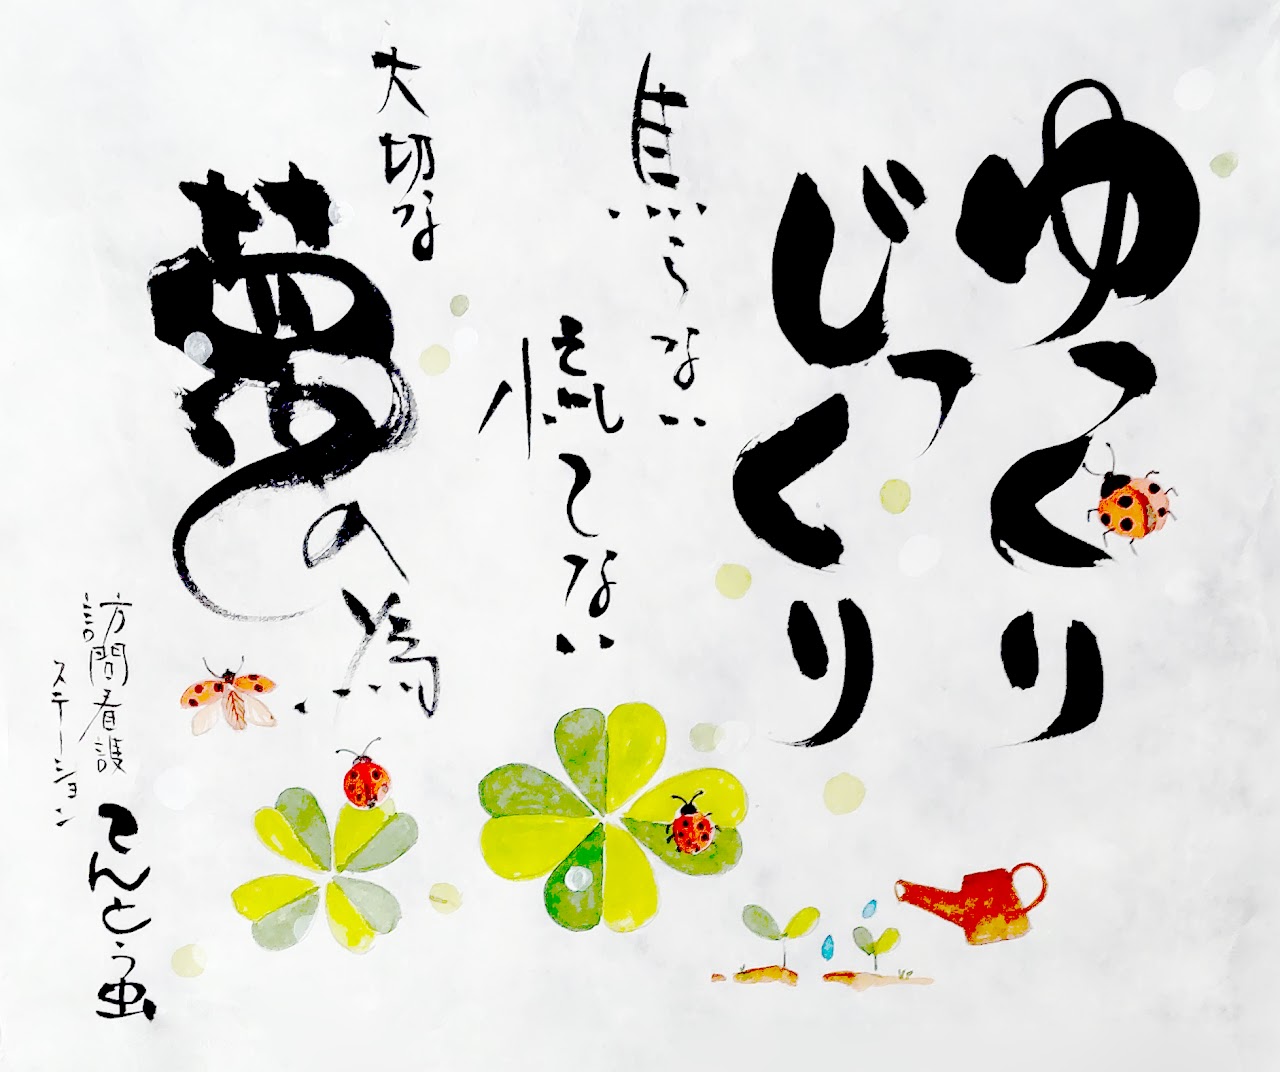 ゆっくり
じっくり
焦らない
慌てない
大切な
夢の為
訪問看護
ステーション
てんとう虫